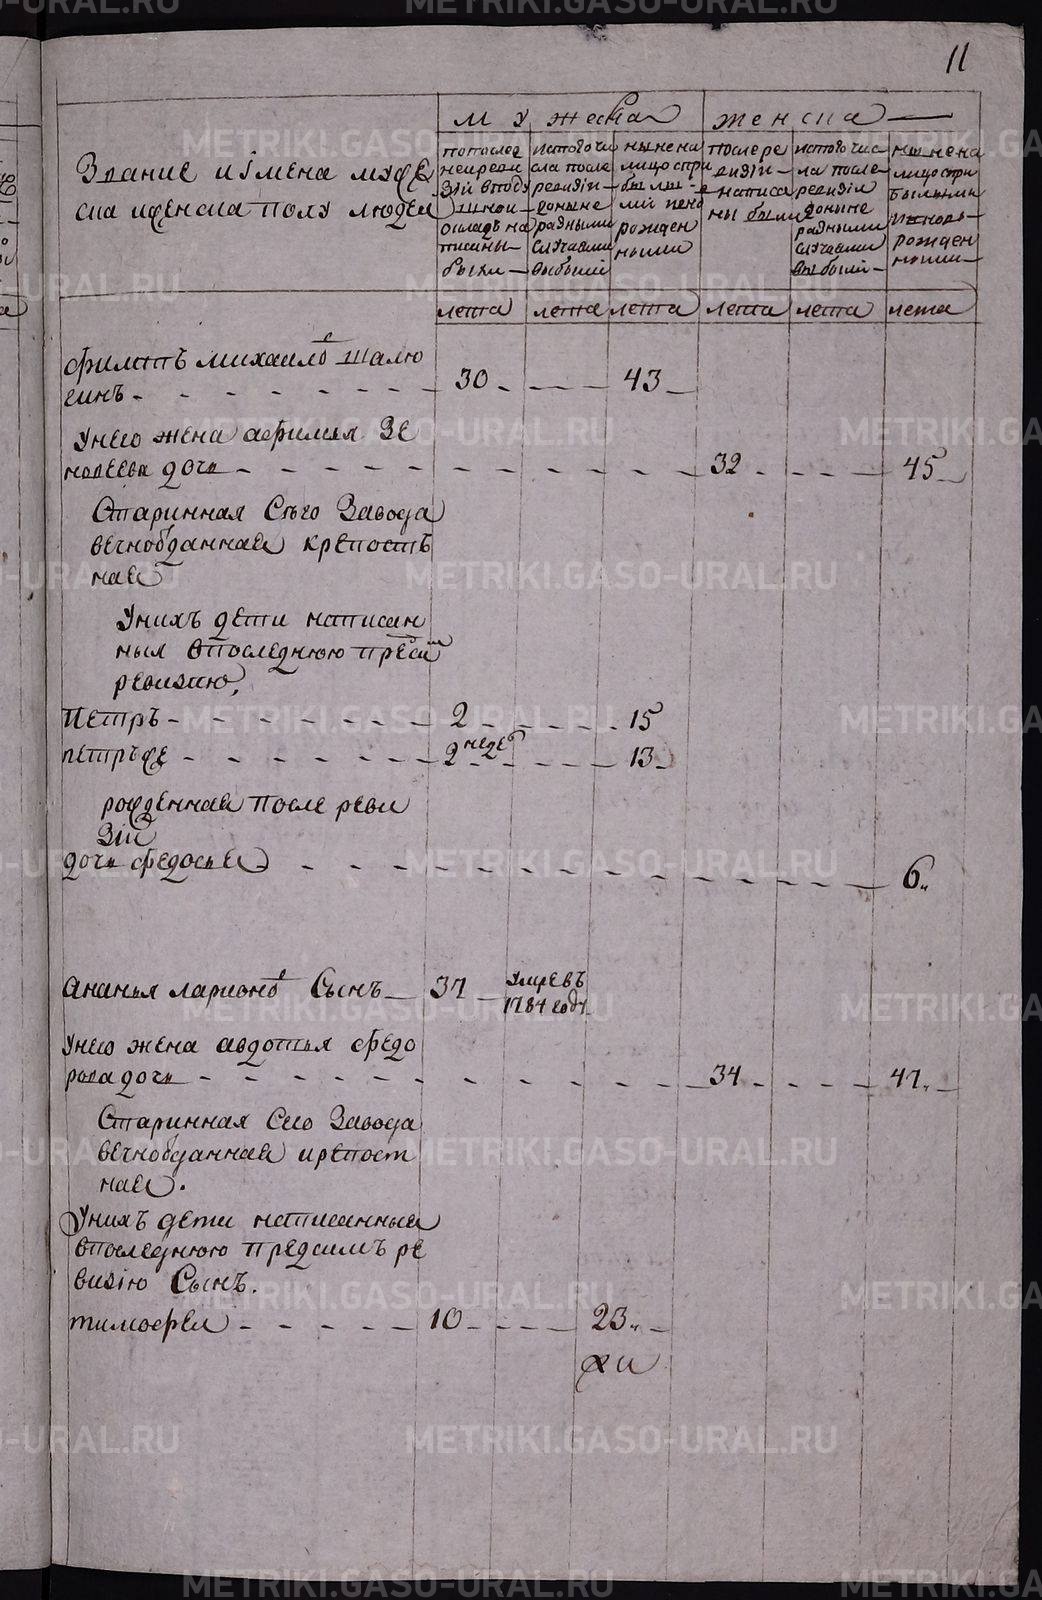 11
мужеска
женска
Звание и имена муже
ска и женска полу людей
по послед
ней реви
зии в поду
шной
окладъ на
писаны
были
ис того чи
сла после
ревизии
доныне
разными
случаями
выбыли
ныне на
лицо с при
былы
ми и вно
рожден
ными
после ре
визии
написа
ны были
ис того чис
ла после
ревизии
доныне
разными
случаями
выбыли
ныне на
лицо с при
былыми
и вновь
рожден
ными
лета лета лета лета лета лета
Филипъ михаиловъ шалю
гинъ 30 43
У него жена афимья Зе
новеева дочь 32 45
Старинная Сего Завода
вечноотданная крепостъ
ная
У нихъ дети написан
ныя в последнюю пред сим
ревизию,
Петръ 2 15
петръ же 2 неде 13
рожденная после реви
зии
дочь федосья 6
Ананья ларионовъ Сынъ 37 Умре въ
1784 году
У него жена авдотья федо
рова дочь 34 47
Старинная Сего Завода
вечноотданная крепост
ная.
У нихъ дети написанныя
в последнюю пред симъ ре
визию Сынъ.
тимофей 10 23